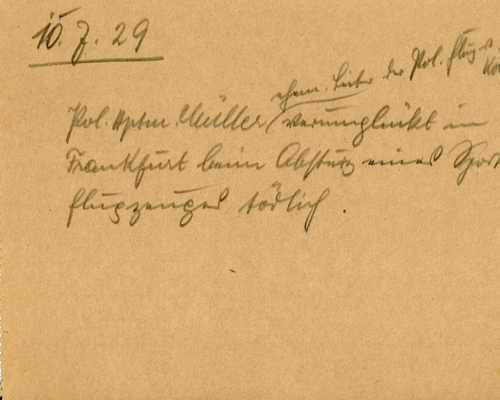 10. 7. 29
ehem. Leiter der Pol. Flug-
Pol. Hptm. Müller verunglückt in
Frankfurt beim Absturz eines Sport
flugzeuges tödlich.